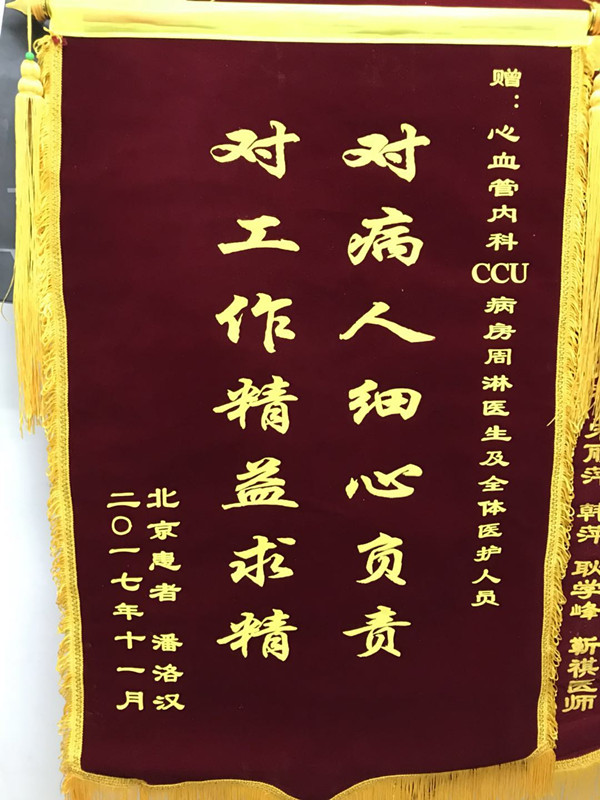 赠：心血管内科CCU病房周淋医生及全体医护人员
对病人细心负责
对工作精益求精
北京患者 潘洛汉
二〇一七年十一月
丽萍 韩萍 耿学峰 靳祺医师